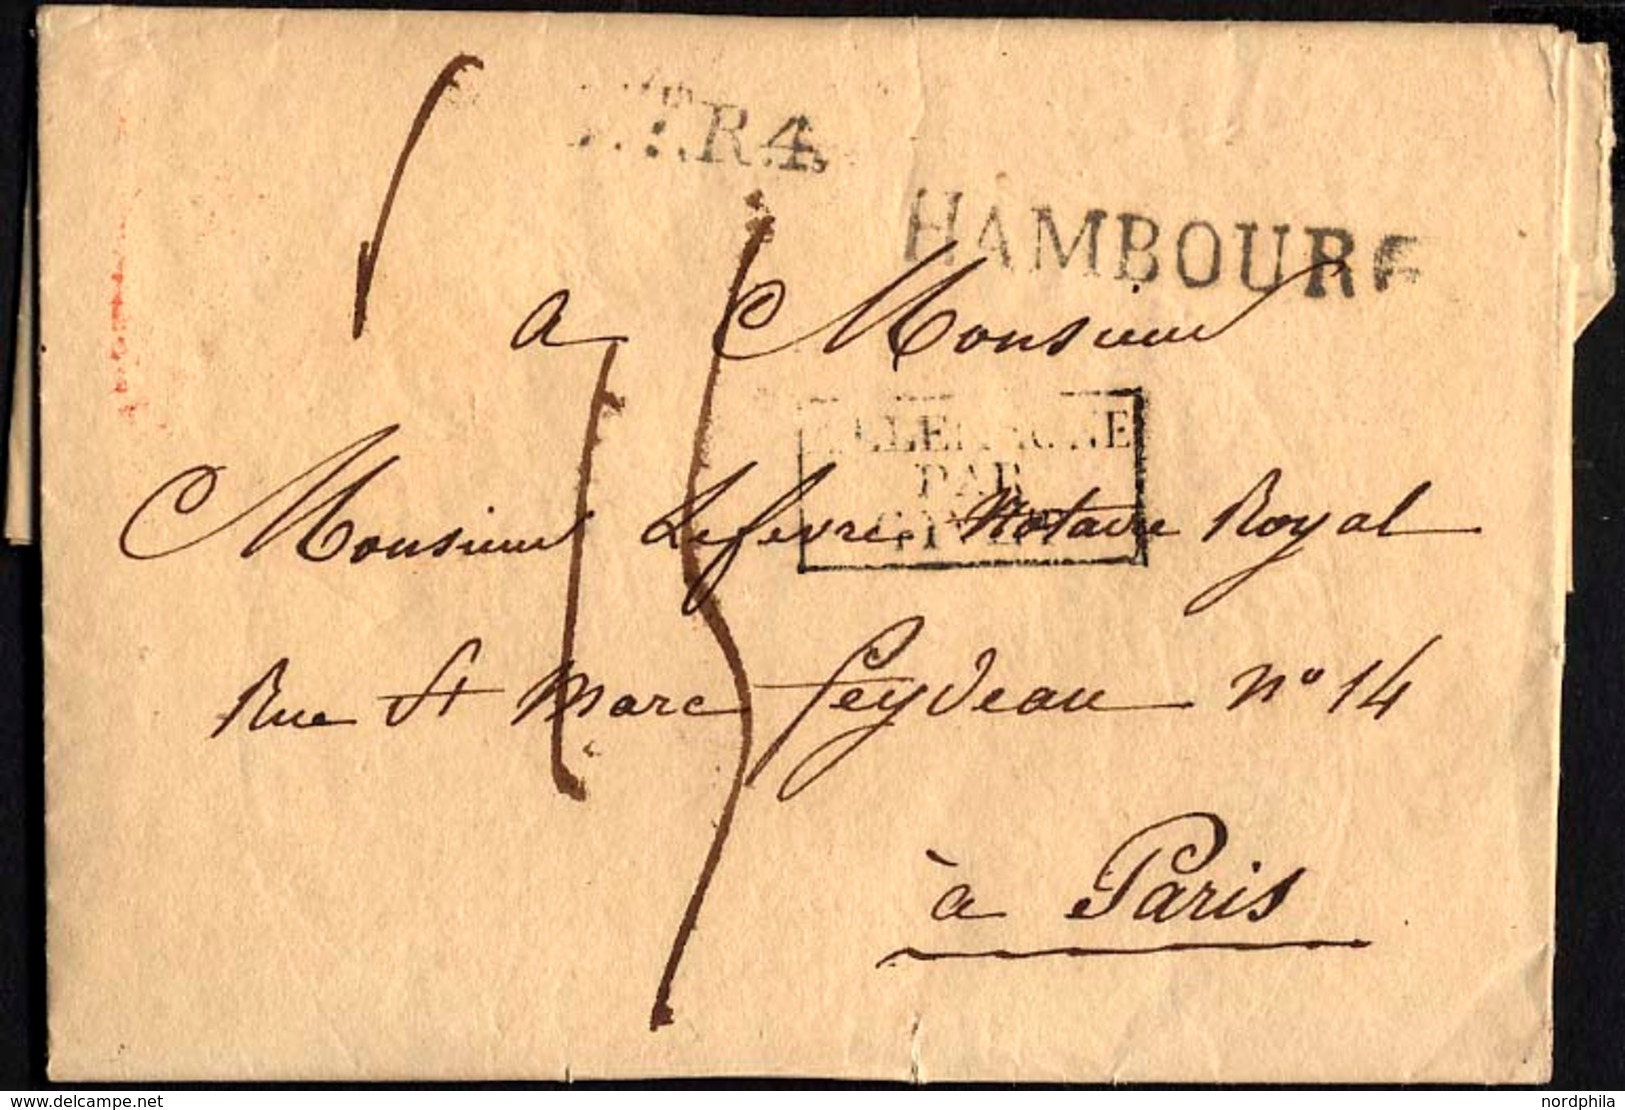 R.4.
HAMBOURG
a Monsieur
ALLEMAGNE
PAR
Monsieur Lefevre Notaire Royal
Rue St Marc feydeau n° 14
à Paris
www.delcampe.net
nordphila